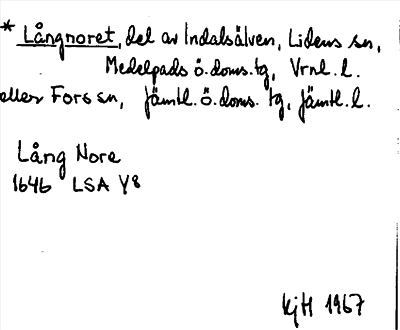 * Långnoret, del av Indalsälven, Lidens sn,
Medelpads ö. doms. tg, Vrnl. l.
eller Fors sn, Jämtl. ö. doms. tg, Jämtl. l.
Lång Nore
1646 LSA Y8
KjH 1967